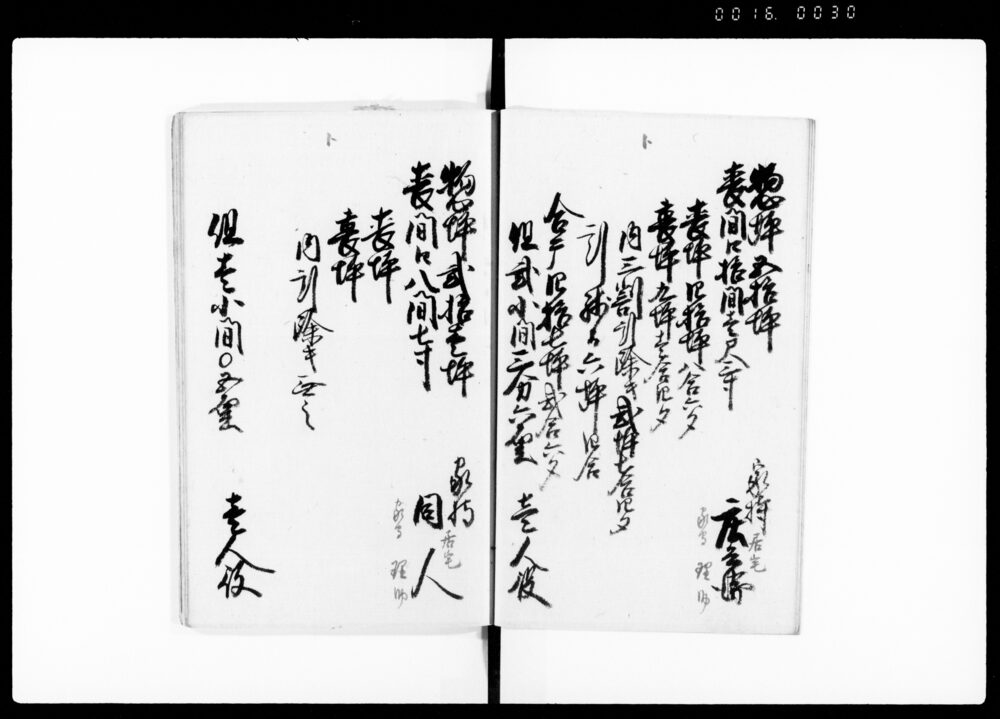 0016. 0030
ト
惣坪五拾坪
家持 居宅
庄兵衛
家守 理助
表間口拾間壱尺二寸
表坪四拾坪八合六夕
裏坪九坪壱合四夕
内三割引除キ弐坪七合四夕
引残り六坪四合
合テ四拾七坪弐合六夕
但弐小間三分六厘 壱人役
ト
惣坪弐拾壱坪
家持 居宅
同人
家守 理助
表間口八間七寸
表坪
裏坪
内引除キ無之
但壱小間〇五厘 壱人役